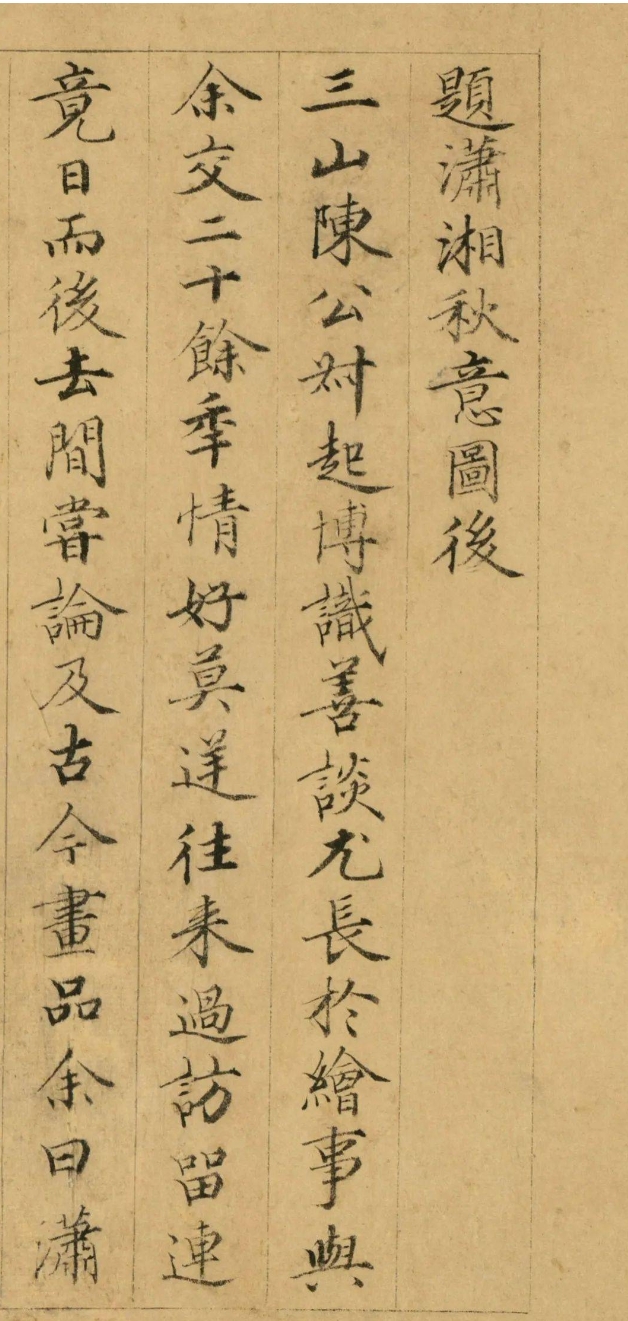 題瀟湘秋意圖後
三山陳公叔起博識善談尤長於繪事與
余交二十餘年情好莫逆往来過訪留連
竟日而後去間嘗論及古今畫品余曰瀟